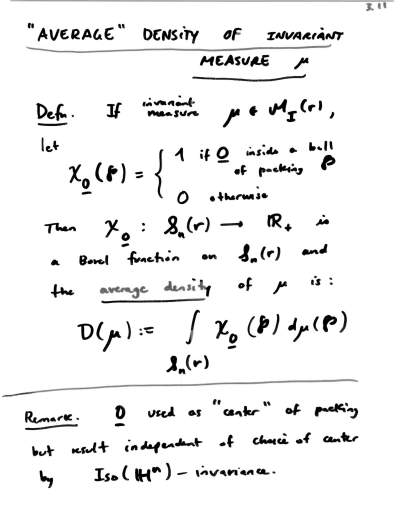 3.11
"AVERAGE" DENSITY OF INVARIANT
MEASURE μ
Defn. If invariant measure μ ∈ M_I(r),
let
χ_0(P) = { 1 if 0 inside a ball of packing P
0 otherwise
Then χ_0 : S_n(r) → R_+ is
a Borel function on S_n(r) and
the average density of μ is:
D(μ) := ∫_{S_n(r)} χ_0(P) dμ(P)
Remark. 0 used as "center" of packing
but result independent of choice of center
by Iso(H^n) - invariance.